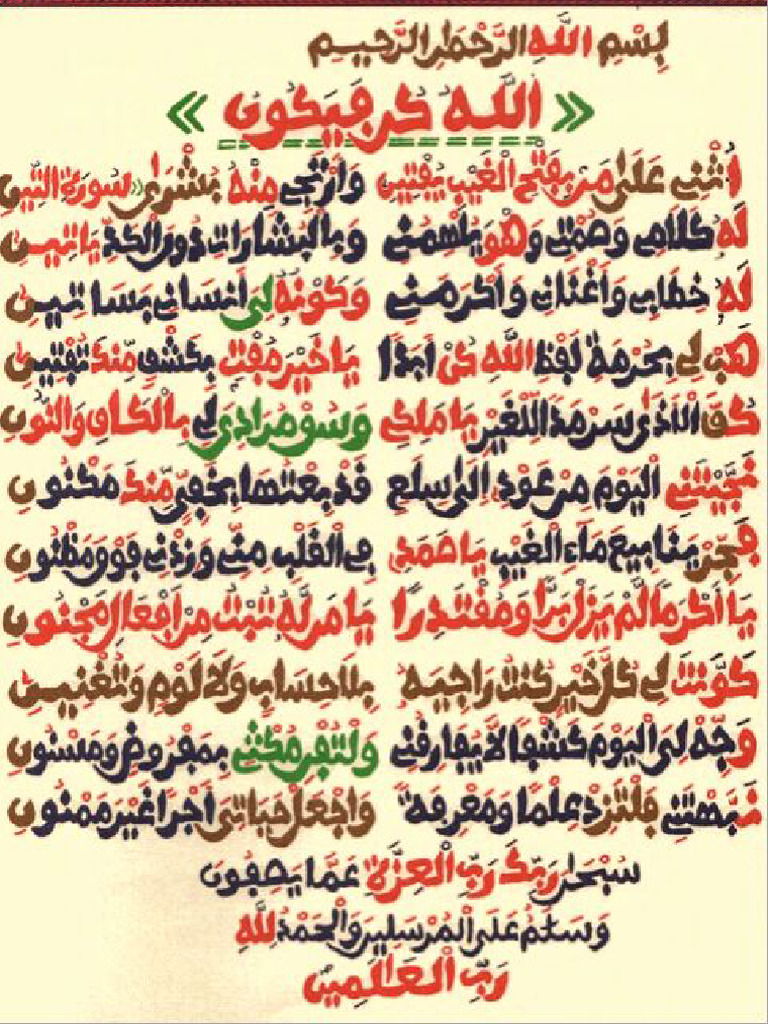 بِسْمِ اللَّهِ الرَّحْمَٰنِ الرَّحِيمِ
« اللَّهُ كُن فَيَكُونُ »
أُثْنِي عَلَىٰ مَن بِفَتْحِ الْغَيْبِ يُفْتِينِي وَأَرْتَجِي مِنْهُ بُشْرَىٰ «سُورَةِ التِّينِ
لَهُ كَلَامِي وَصُمْتِي وَهُوَ يُلْهِمُنِي وَبِالْبِشَارَاتِ دُونَ الْكَدِّ يَاتِينِي
لَهُ خِطَابِي وَأَغْنَانِي وَأَكْرَمَنِي وَكَوْنُهُ لِي أَنْسَانِي بَسَاتِينِي
هَبْ لِي بِحُرْمَةِ لَفْظِ اللَّهِ كُنْ أَبَدًا يَا خَيْرَ مُفْتٍ بِكَشْفٍ مِّنكَ تُفْتِينِي
كُفَّ الْأَذَىٰ سَرْمَدًا لِلْغَيْرِ يَا مَلِكِي وَسُقْ مُرَادِي لِي بِالْكَافِ وَالنُّونِ
نَجَّيْتَنِي الْيَوْمَ مِنْ عَوْدٍ إِلَىٰ سِلَعٍ قَدْ بِعْتُهَا بِخَفِيٍّ مِّنكَ مَكْنُونِ
فَجِّرْ يَنَابِيعَ مَاءِ الْغَيْبِ يَا صَمَدُ فِي الْقَلْبِ مِنِّي وَزِدْنِي فَوْقَ مَظْنُونِ
يَا أَكْرَمًا لَّمْ يَزَلْ بَرًّا وَمُقْتَدِرًا يَا مَن لَّهُ تُبْتُ مِنْ أَفْعَالِ مَجْنُونِ
كَوَّنْتَ لِي كُلَّ خَيْرٍ كُنتُ رَاجِيَهُ بِلَا حِسَابٍ وَلَا لَوْمٍ وَتُغْنِينِي
وَجِّهْ لِيَ الْيَوْمَ كَشْفًا لَّا يُفَارِقُنِي وَلْتُبْقِ مُكْثِي بِمَفْرُوضٍ وَمَسْنُونِ
نَبَّهْتَنِي فَلْتَزِدْ عِلْمًا وَمَعْرِفَةً وَاجْعَلْ حَيَاتِي أَجْرًا غَيْرَ مَمْنُونِ
سُبْحَٰنَ رَبِّكَ رَبِّ الْعِزَّةِ عَمَّا يَصِفُونَ
وَسَلَٰمٌ عَلَى الْمُرْسَلِينَ وَالْحَمْدُ لِلَّهِ
رَبِّ الْعَالَمِينَ